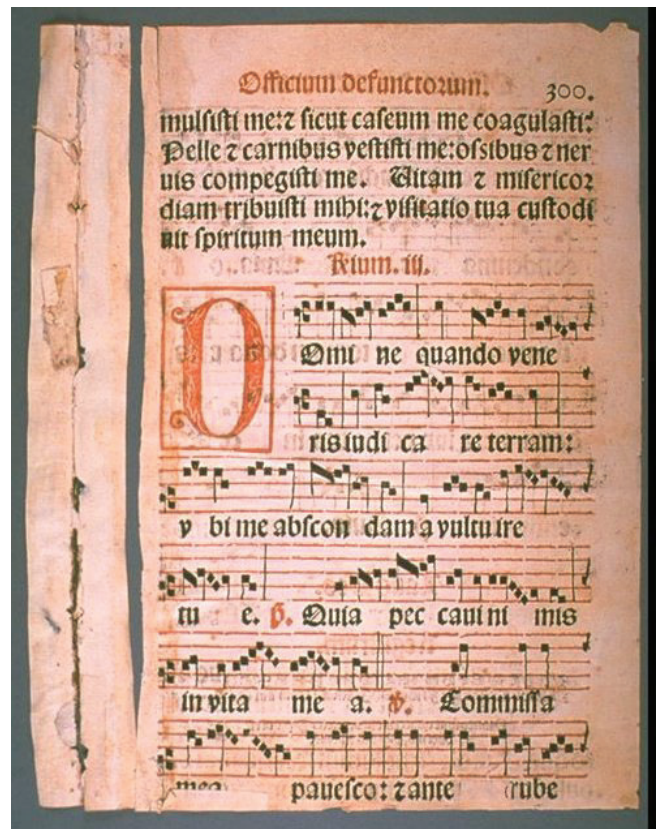 Officium defunctorum. 300.
mulsisti me:⁊ sicut caseum me coagulasti:
Pelle ⁊ carnibus vestisti me:ossibus ⁊ ner
uis compegisti me. Uitam ⁊ misericor
diam tribuisti mihi:⁊ visitatio tua custodi
uit spiritum meum.
℟ium. iij.
Domi ne quando vene
ris iudi ca re terram:
v bi me abscon dam a vultu ire
tu e. ℣. Quia pec caui ni mis
in vita me a. ℣. Commissa
mea pauesco: ⁊ ante rube